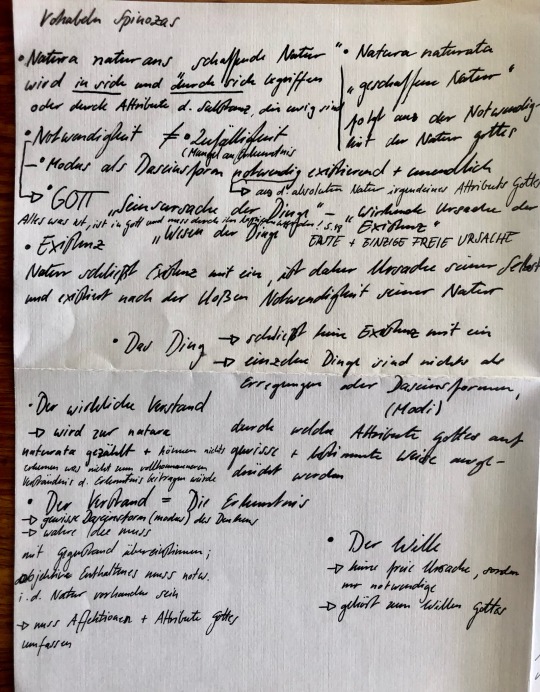 Vokabeln Spinozas
• Natura naturans "schaffende Natur"
wird in sich und durch sich begriffen
oder durch Attribute d. Substanz, die ewig sind
• Natura naturata
"geschaffene Natur"
folgt aus der Notwendig-
keit der Natur Gottes
• Notwendigkeit ≠ • Zufälligkeit
(Mangel an Erkenntnis
– Modus als Daseinsform notwendig existierend + unendlich
→ aus d. absoluten Natur irgendeines Attributs Gottes
→ GOTT "Seinsursache der Dinge" – "wirkende Ursache der
Existenz"
Alles was ist, ist in Gott und muss durch ihn begriffen werden! S.
"Wesen der Dinge
ERSTE + EINZIGE FREIE URSACHE
• Existenz
Natur schließt Existenz mit ein, ist daher Ursache seiner Selbst
und existiert nach der bloßen Notwendigkeit seiner Natur
• Das Ding → schließt keine Existenz mit ein
→ einzelne Dinge sind nichts als
Erregungen oder Daseinsformen,
(Modi)
durch welche Attribute Gottes auf
gewisse + bestimmte Weise ausge-
drückt werden
• Der wirkliche Verstand
→ wird zur natura
naturata gezählt + können nichts
erkennen was nicht zum vollkommeneren
Verständnis d. Erkenntnis beitragen würde
• Der Verstand = Die Erkenntnis
→ gewisse Daseinsform (modus) des Denkens
→ wahre Idee muss
mit Gegenstand übereinstimmen;
objektiv Enthaltenes muss notw.
i. d. Natur vorhanden sein
→ muss Affektionen + Attribute Gottes
umfassen
• Der Wille
→ keine freie Ursache, sondern
nur notwendige
→ gehört zum Willen Gottes